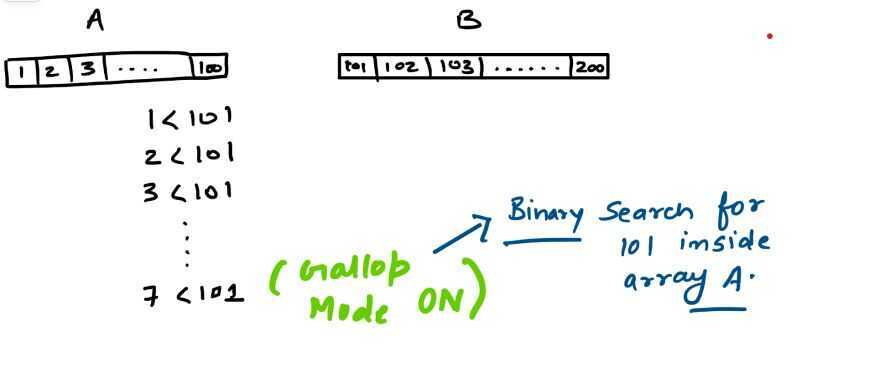 A
B
1 2 3 .... 100
101 102 103 ...... 200
1 < 101
2 < 101
3 < 101
7 < 101
(Gallop
Mode ON)
Binary Search for
101 inside
array A.